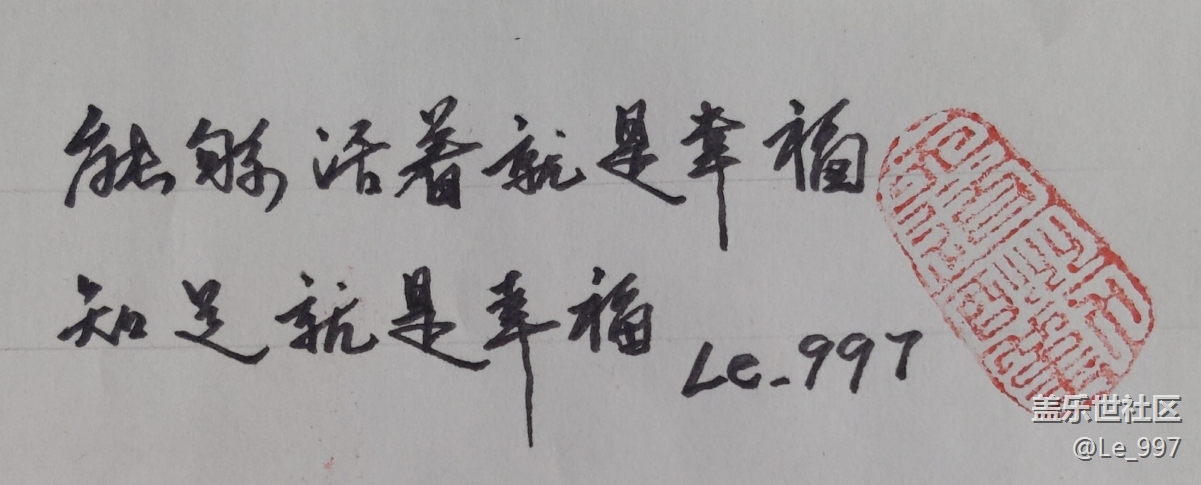 能够活着就是幸福
知足就是幸福
Le_997
盖乐世社区
@Le_997